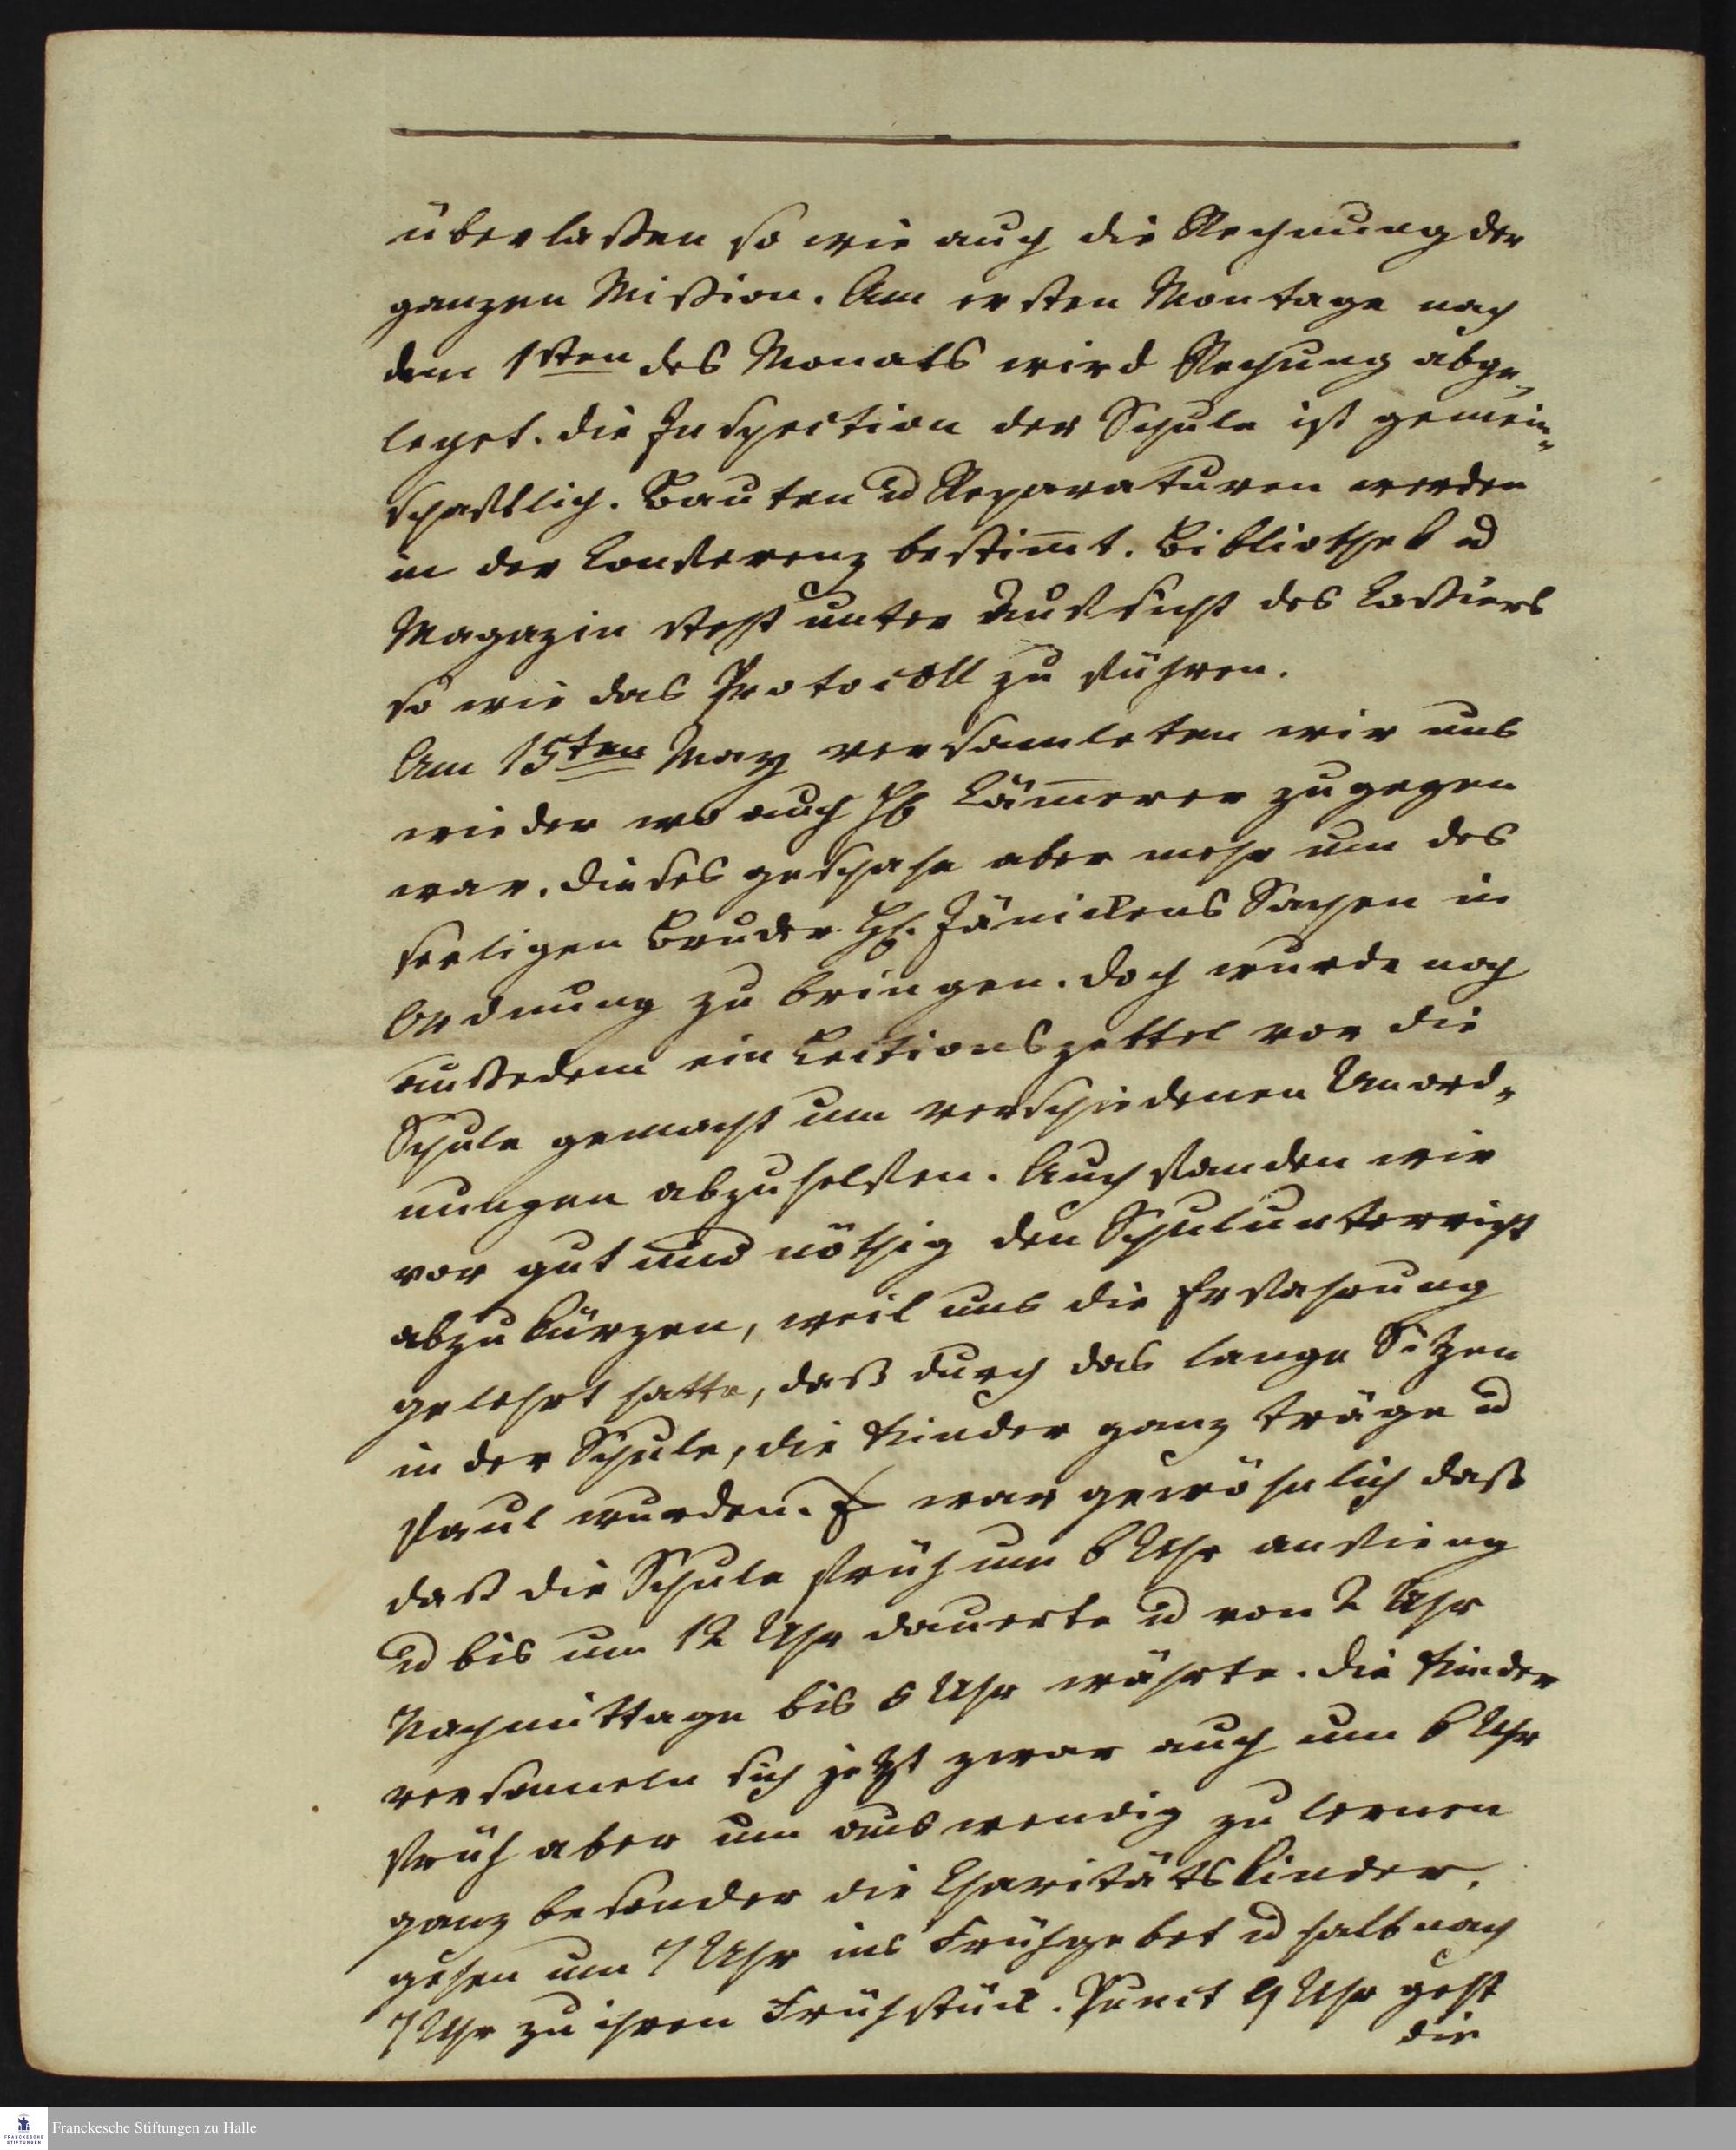 überlaßen so wie auch die Rechnung der
ganzen Mission. Am ersten Montage nach
dem 1sten des Monats wird Rechung abge-
leget. die Inspection der Schule ist gemein-
schaftlich. Bauten u Reparaturen werden
in der Conferenz bestim̅t. Bibliothek u
Magazin steht unter Aufsicht des Cassiers
so wie das Protocoll zu führen.
Am 15ten May versamleten wir uns
wieder wo auch H Cäm̅erer zugegen
war. dieses geschahe aber mehr um des
seeligen Bruder H. Jänickens Sachen in
Ordnung zu bringen. doch wurde noch
außedem ein Lectionszettel vor die
Schule gemacht um verschiedenen Unord-
nungen abzuhelfen. Auch fanden wir
vor gut und nöthig den Schulunterricht
abzukürzen, weil uns die Erfahrung
gelehrt hatte, daß durch das lange Sitzen
in der Schule, die Kinder ganz träge u
faul wurden. Es war gewöhnlich daß
daß die Schule früh um 6 Uhr anfieng
u bis um 12 Uhr dauerte u von 2 Uhr
Nachmittage bis 5 Uhr währte. die Kinder
versameln sich jetzt zwar auch um 6 Uhr
früh aber um auswendig zu lernen
ganz besonder die Charitätskinder,
gehen um 7 Uhr ins Frühgebet u halb nach
7 Uhr zu ihren Frühstück. Punct 9 Uhr geht
die
Franckesche Stiftungen zu Halle
FRANCKESCHE
STIFTUNGEN